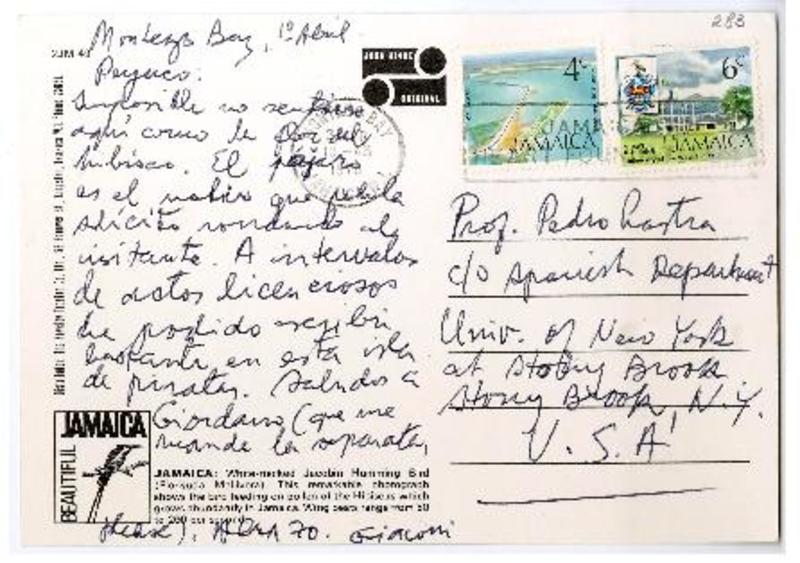 283
Montego Bay, 1º Abril
Payuco:
Imposible no sentirse
aquí como la flor del
hibisco. El pájaro
es el nativo que
solícito rondando al
visitante. A intervalos
de actos licenciosos
he podido escribir
bastante en esta isla
de piratas. Saludos a
Giordano (que me
mande la separata,
please). Abrazo.
JOHN HINDE
ORIGINAL
4c
JAMAICA
6c
JAMAICA
Prof. Pedro Lastra
c/o Spanish Department
Univ. of New York
at Stony Brook
Stony Brook, N.Y.
U.S.A
JAMAICA
BEAUTIFUL
JAMAICA: White-necked Jacobin Humming Bird
(Florisuga Mellivora). This remarkable photograph
shows the bird feeding on pollen of the Hibiscus which
grows abundantly in Jamaica. Wing beats range from 50
to 200 per second.